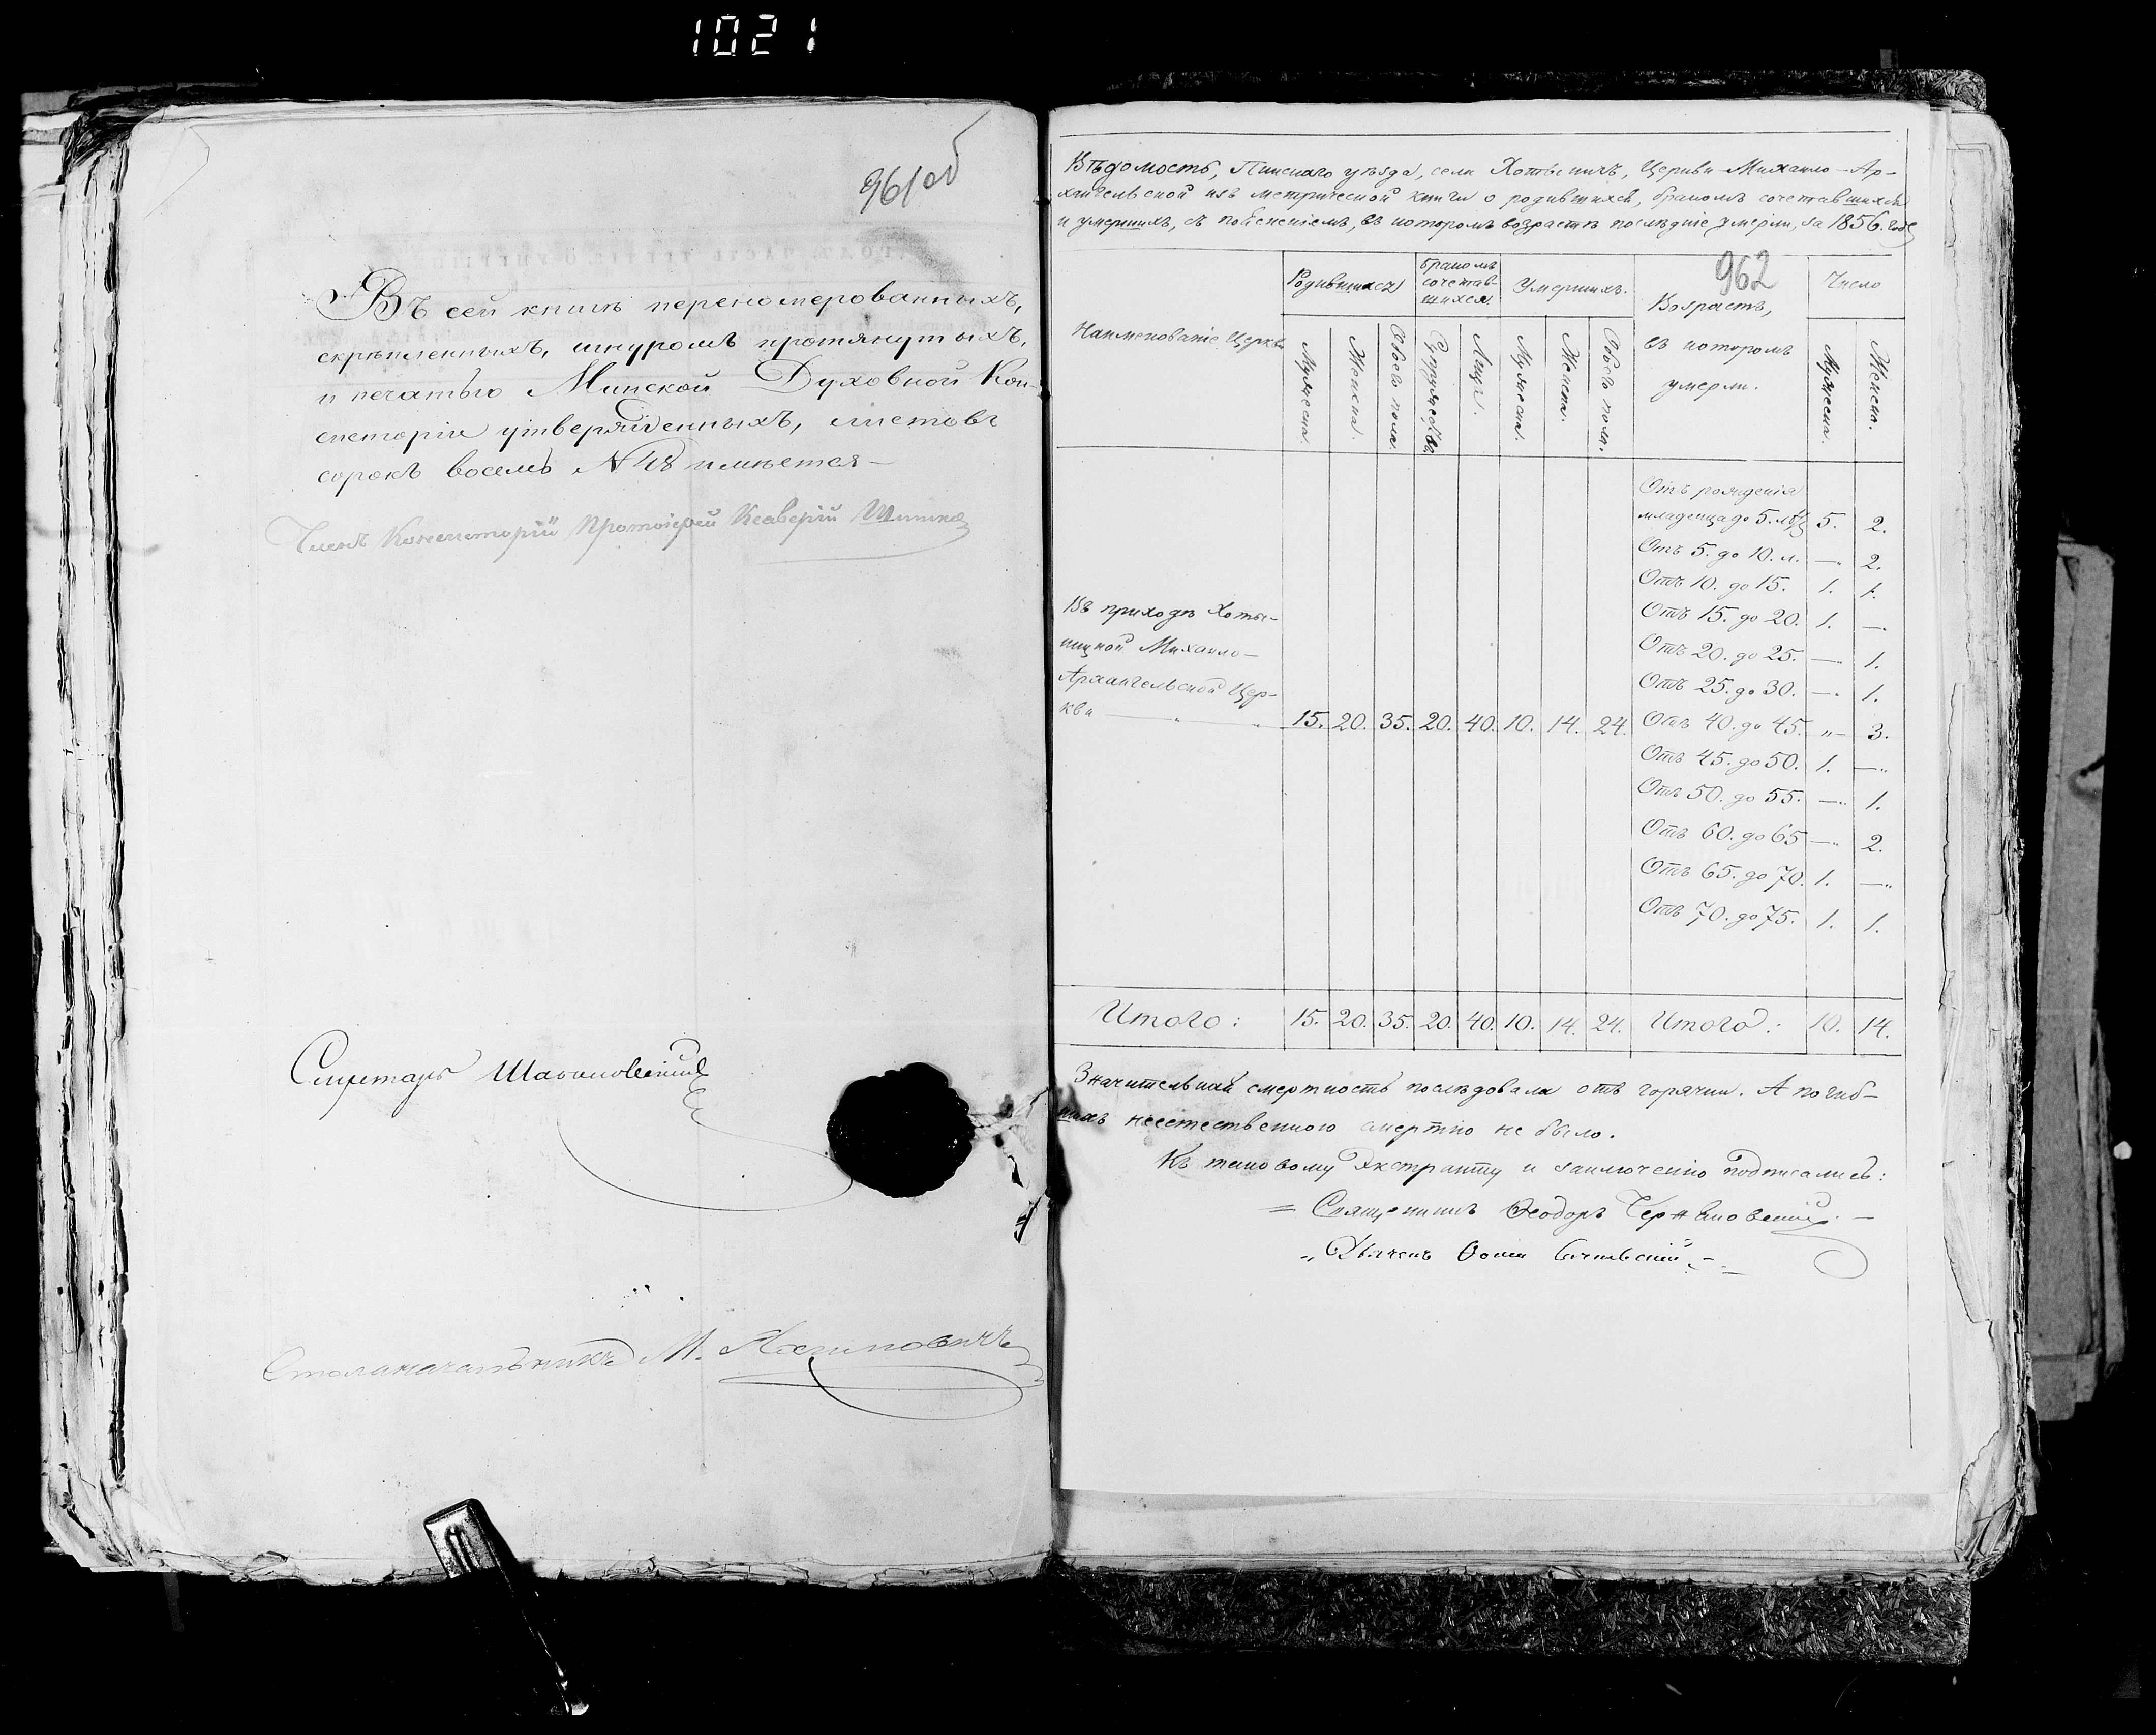 1021
961об
Въ сей книгѣ перенумерованныхъ,
скрѣпленныхъ, шнуромъ протянутыхъ,
и печатью Минской Духовной Кон-
систоріи утвержденныхъ, листовъ
сорокъ восемь № 48 имѣется —
Членъ Консисторіи Протоіерей Ксаверій
Секретарь
Столоначальникъ М.
Вѣдомость, Пинскаго уѣзда, села Хотыничъ, Церкви Михаило-Ар-
хангельской изъ метрической книги о родившихся, бракомъ сочетавшихся
и умершихъ, съ поясненіемъ, въ которомъ возрастѣ послѣдніе умерли, за 1856. годъ
962
Наименованіе Церкви
Родившихся
Бракомъ
сочетав-
шихся.
Умершихъ.
Возрастъ,
въ которомъ
умерли.
Число
Мужеска.
Женска.
Обоего пола.
Супружествъ.
Лицъ.
Мужеска.
Женска.
Обоего пола.
Мужеска.
Женска.
Въ приходѣ Хоты-
ницкой Михаило-
Архангельской Цер-
кви 15. 20. 35. 20. 40. 10. 14. 24.
Отъ рожденія
младенца до 5. лѣтъ 5. 2.
Отъ 5. до 10. л. —. 2.
Отъ 10. до 15. 1. 1.
Отъ 15. до 20. 1. —.
Отъ 20. до 25. —. 1.
Отъ 25. до 30. —. 1.
Отъ 40. до 45. „— 3.
Отъ 45. до 50. 1. —„
Отъ 50. до 55. —„ 1.
Отъ 60. до 65 —„ 2.
Отъ 65. до 70. 1. —„
Отъ 70. до 75. 1. 1.
Итого: 15. 20. 35. 20. 40. 10. 14. 24. Итого: 10. 14.
Значительная смертность послѣдовала отъ горячки. А погиб-
шихъ неестественною смертію не было.
Къ таковому Экстракту и заключенію подписались:
= Священникъ Ѳеодоръ
„ Дьячекъ Ѳома